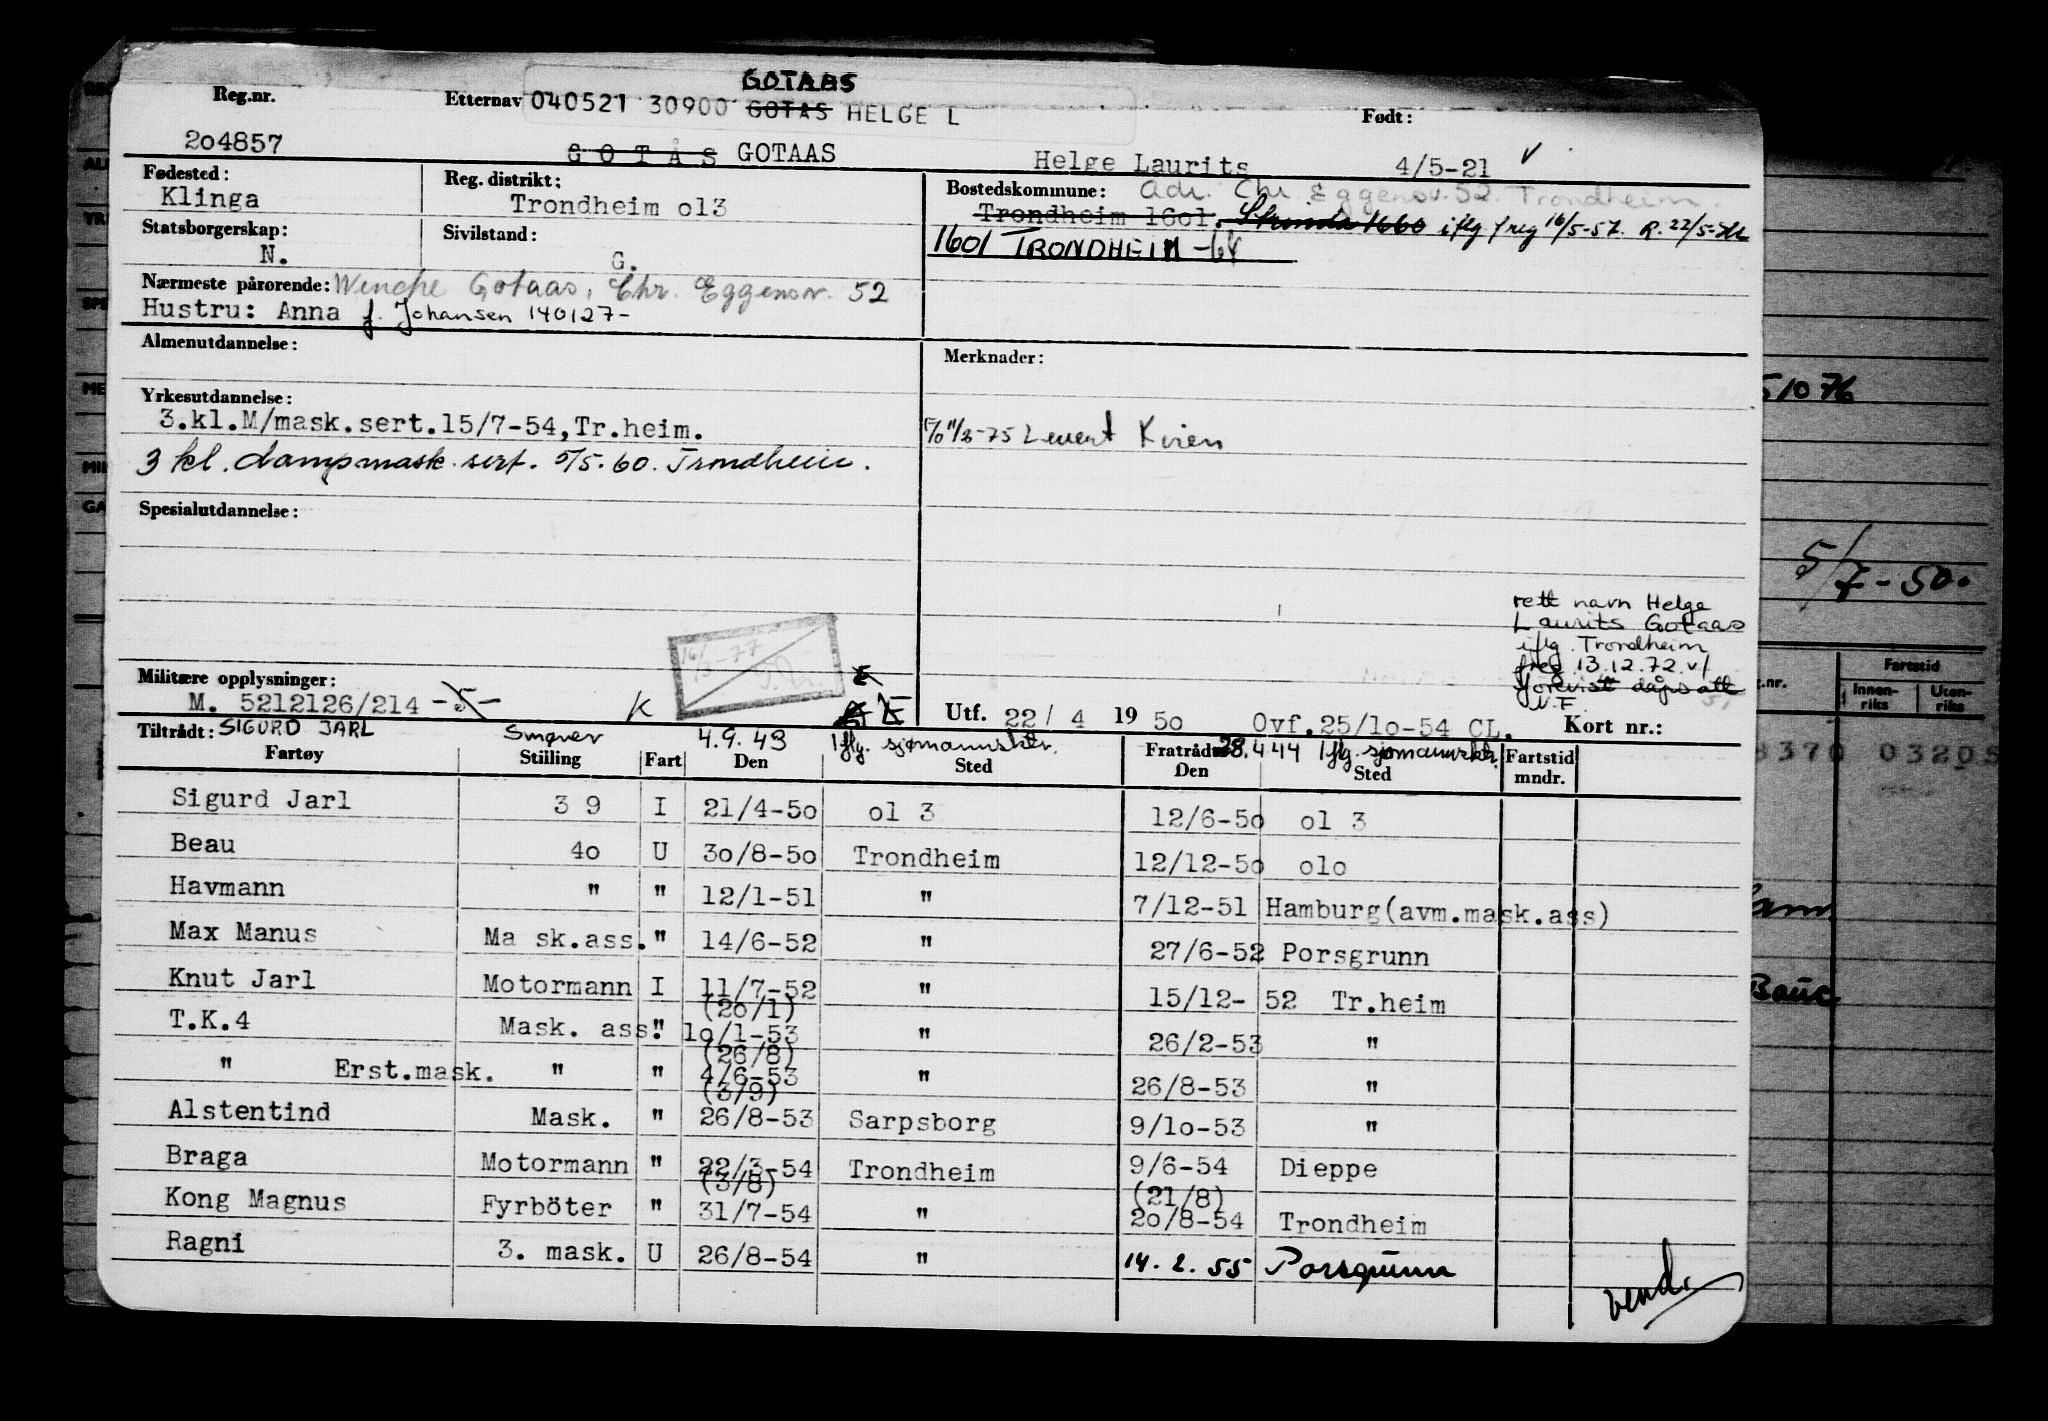 GOTAAS
Reg.nr. Etternav 040521 30900 GOTAS HELGE L Født:
204857 GOTÅS GOTAAS Helge Laurits 4/5-21 v
Fødested: Reg. distrikt: Bostedskommune: Adr. Chr Eggensv. 52. Trondheim
Klinga Trondheim o13 Trondheim 1601. Strinda 1660 iflg freg 16/5-57. R. 22/5-
Statsborgerskap: Sivilstand: 1601 TRONDHEIM -68
N. G.
Nærmeste pårørende: Wenche Gotaas, Chr. Eggensv. 52
Hustru: Anna f. Johansen 140127-
Almenutdannelse: Merknader:
Yrkesutdannelse:
3.kl.M/mask.sert.15/7-54,Tr.heim. -75 Levert Kvien
3 kl. dampmask. sert. 5/5.60. Trondheim.
Spesialutdannelse:
rett navn Helge
Laurits Gotaas
iflg. Trondheim
freg 13.12.72 v/
forevist dåpsatt
V.F.
Militære opplysninger:
M. 5212126/214 -5- K Utf. 22/ 4 19 50 Ovf.25/10-54 CL. Kort nr.:
Tiltrådt: SIGURD JARL Smører 4.9.43 iflg. sjømannsktr. Fratrådt: 28.4.44 iflg. sjømannsktr.
Fartøy Stilling Fart Den Sted Den Sted Fartstid mndr.
Sigurd Jarl 3 9 I 21/4-50 o1 3 12/6-50 o1 3
Beau 40 U 30/8-50 Trondheim 12/12-50 o1o
Havmann " " 12/1-51 " 7/12-51 Hamburg(avm.mask.ass)
Max Manus Ma sk.ass. " 14/6-52 " 27/6-52 Porsgrunn
Knut Jarl Motormann I 11/7-52 " 15/12-52 Tr.heim
(20/1)
T.K.4 Mask. ass. " 10/1-53 " 26/2-53 "
(26/8)
" Erst.mask. " " 4/6-53 " 26/8-53 "
(3/9)
Alstentind Mask. " 26/8-53 Sarpsborg 9/10-53 "
Braga Motormann " 22/3-54 Trondheim 9/6-54 Dieppe
(3/8) (21/8)
Kong Magnus Fyrböter " 31/7-54 " 20/8-54 Trondheim
Ragni 3. mask. U 26/8-54 " 14.2.55 Porsgrunn
vend.
51076
5/7-50.
Fartstid
Innenriks Utenriks
8370 03205